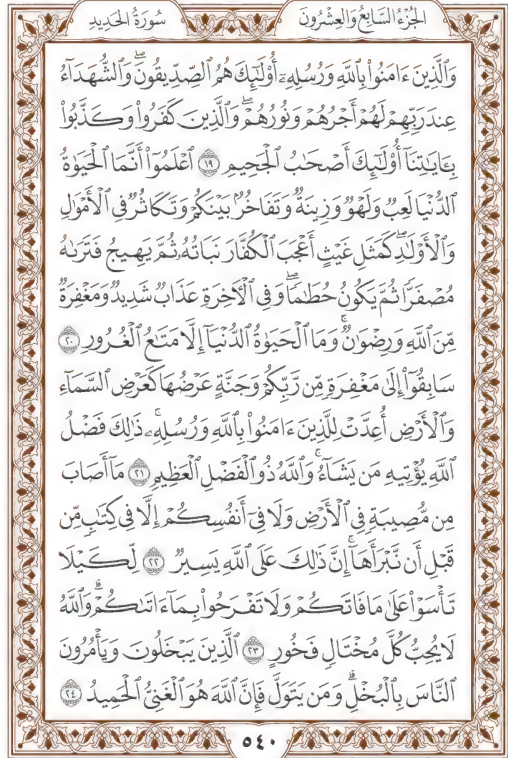 الجُزْءُ السَّابِعُ وَالعِشْرُونَ
سُورَةُ الحَدِيدِ
وَالَّذِينَ ءَامَنُوا۟ بِٱللَّهِ وَرُسُلِهِۦٓ أُو۟لَٰٓئِكَ هُمُ ٱلصِّدِّيقُونَۖ وَٱلشُّهَدَآءُ
عِندَ رَبِّهِمْ لَهُمْ أَجْرُهُمْ وَنُورُهُمْۖ وَٱلَّذِينَ كَفَرُوا۟ وَكَذَّبُوا۟
بِـَٔايَٰتِنَآ أُو۟لَٰٓئِكَ أَصْحَٰبُ ٱلْجَحِيمِ ١٩ ٱعْلَمُوٓا۟ أَنَّمَا ٱلْحَيَوٰةُ
ٱلدُّنْيَا لَعِبٌ وَلَهْوٌ وَزِينَةٌ وَتَفَاخُرٌۢ بَيْنَكُمْ وَتَكَاثُرٌ فِى ٱلْأَمْوَٰلِ
وَٱلْأَوْلَٰدِۖ كَمَثَلِ غَيْثٍ أَعْجَبَ ٱلْكُفَّارَ نَبَاتُهُۥ ثُمَّ يَهِيجُ فَتَرَىٰهُ
مُصْفَرًّا ثُمَّ يَكُونُ حُطَٰمًاۖ وَفِى ٱلْءَاخِرَةِ عَذَابٌ شَدِيدٌ وَمَغْفِرَةٌ
مِّنَ ٱللَّهِ وَرِضْوَٰنٌۚ وَمَا ٱلْحَيَوٰةُ ٱلدُّنْيَآ إِلَّا مَتَٰعُ ٱلْغُرُورِ ٢٠
سَابِقُوٓا۟ إِلَىٰ مَغْفِرَةٍ مِّن رَّبِّكُمْ وَجَنَّةٍ عَرْضُهَا كَعَرْضِ ٱلسَّمَآءِ
وَٱلْأَرْضِ أُعِدَّتْ لِلَّذِينَ ءَامَنُوا۟ بِٱللَّهِ وَرُسُلِهِۦۚ ذَٰلِكَ فَضْلُ
ٱللَّهِ يُؤْتِيهِ مَن يَشَآءُۚ وَٱللَّهُ ذُو ٱلْفَضْلِ ٱلْعَظِيمِ ٢١ مَآ أَصَابَ
مِن مُّصِيبَةٍ فِى ٱلْأَرْضِ وَلَا فِىٓ أَنفُسِكُمْ إِلَّا فِى كِتَٰبٍ مِّن
قَبْلِ أَن نَّبْرَأَهَآۚ إِنَّ ذَٰلِكَ عَلَى ٱللَّهِ يَسِيرٌ ٢٢ لِّكَيْلَا
تَأْسَوْا۟ عَلَىٰ مَا فَاتَكُمْ وَلَا تَفْرَحُوا۟ بِمَآ ءَاتَىٰكُمْۗ وَٱللَّهُ
لَا يُحِبُّ كُلَّ مُخْتَالٍ فَخُورٍ ٢٣ ٱلَّذِينَ يَبْخَلُونَ وَيَأْمُرُونَ
ٱلنَّاسَ بِٱلْبُخْلِۗ وَمَن يَتَوَلَّ فَإِنَّ ٱللَّهَ هُوَ ٱلْغَنِىُّ ٱلْحَمِيدُ ٢٤
٥٤٠